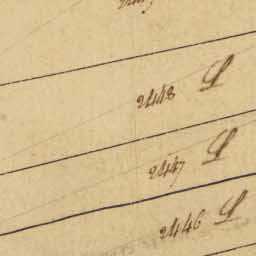 2448 L
2447 L
2446 L